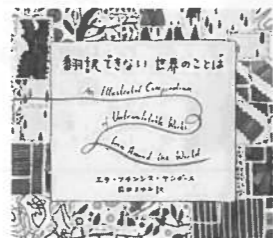 翻訳できない 世界のことば
An Illustrated Compendium
of Untranslatable Words
from Around the World
エラ・フランシス・サンダース
前田まゆみ 訳